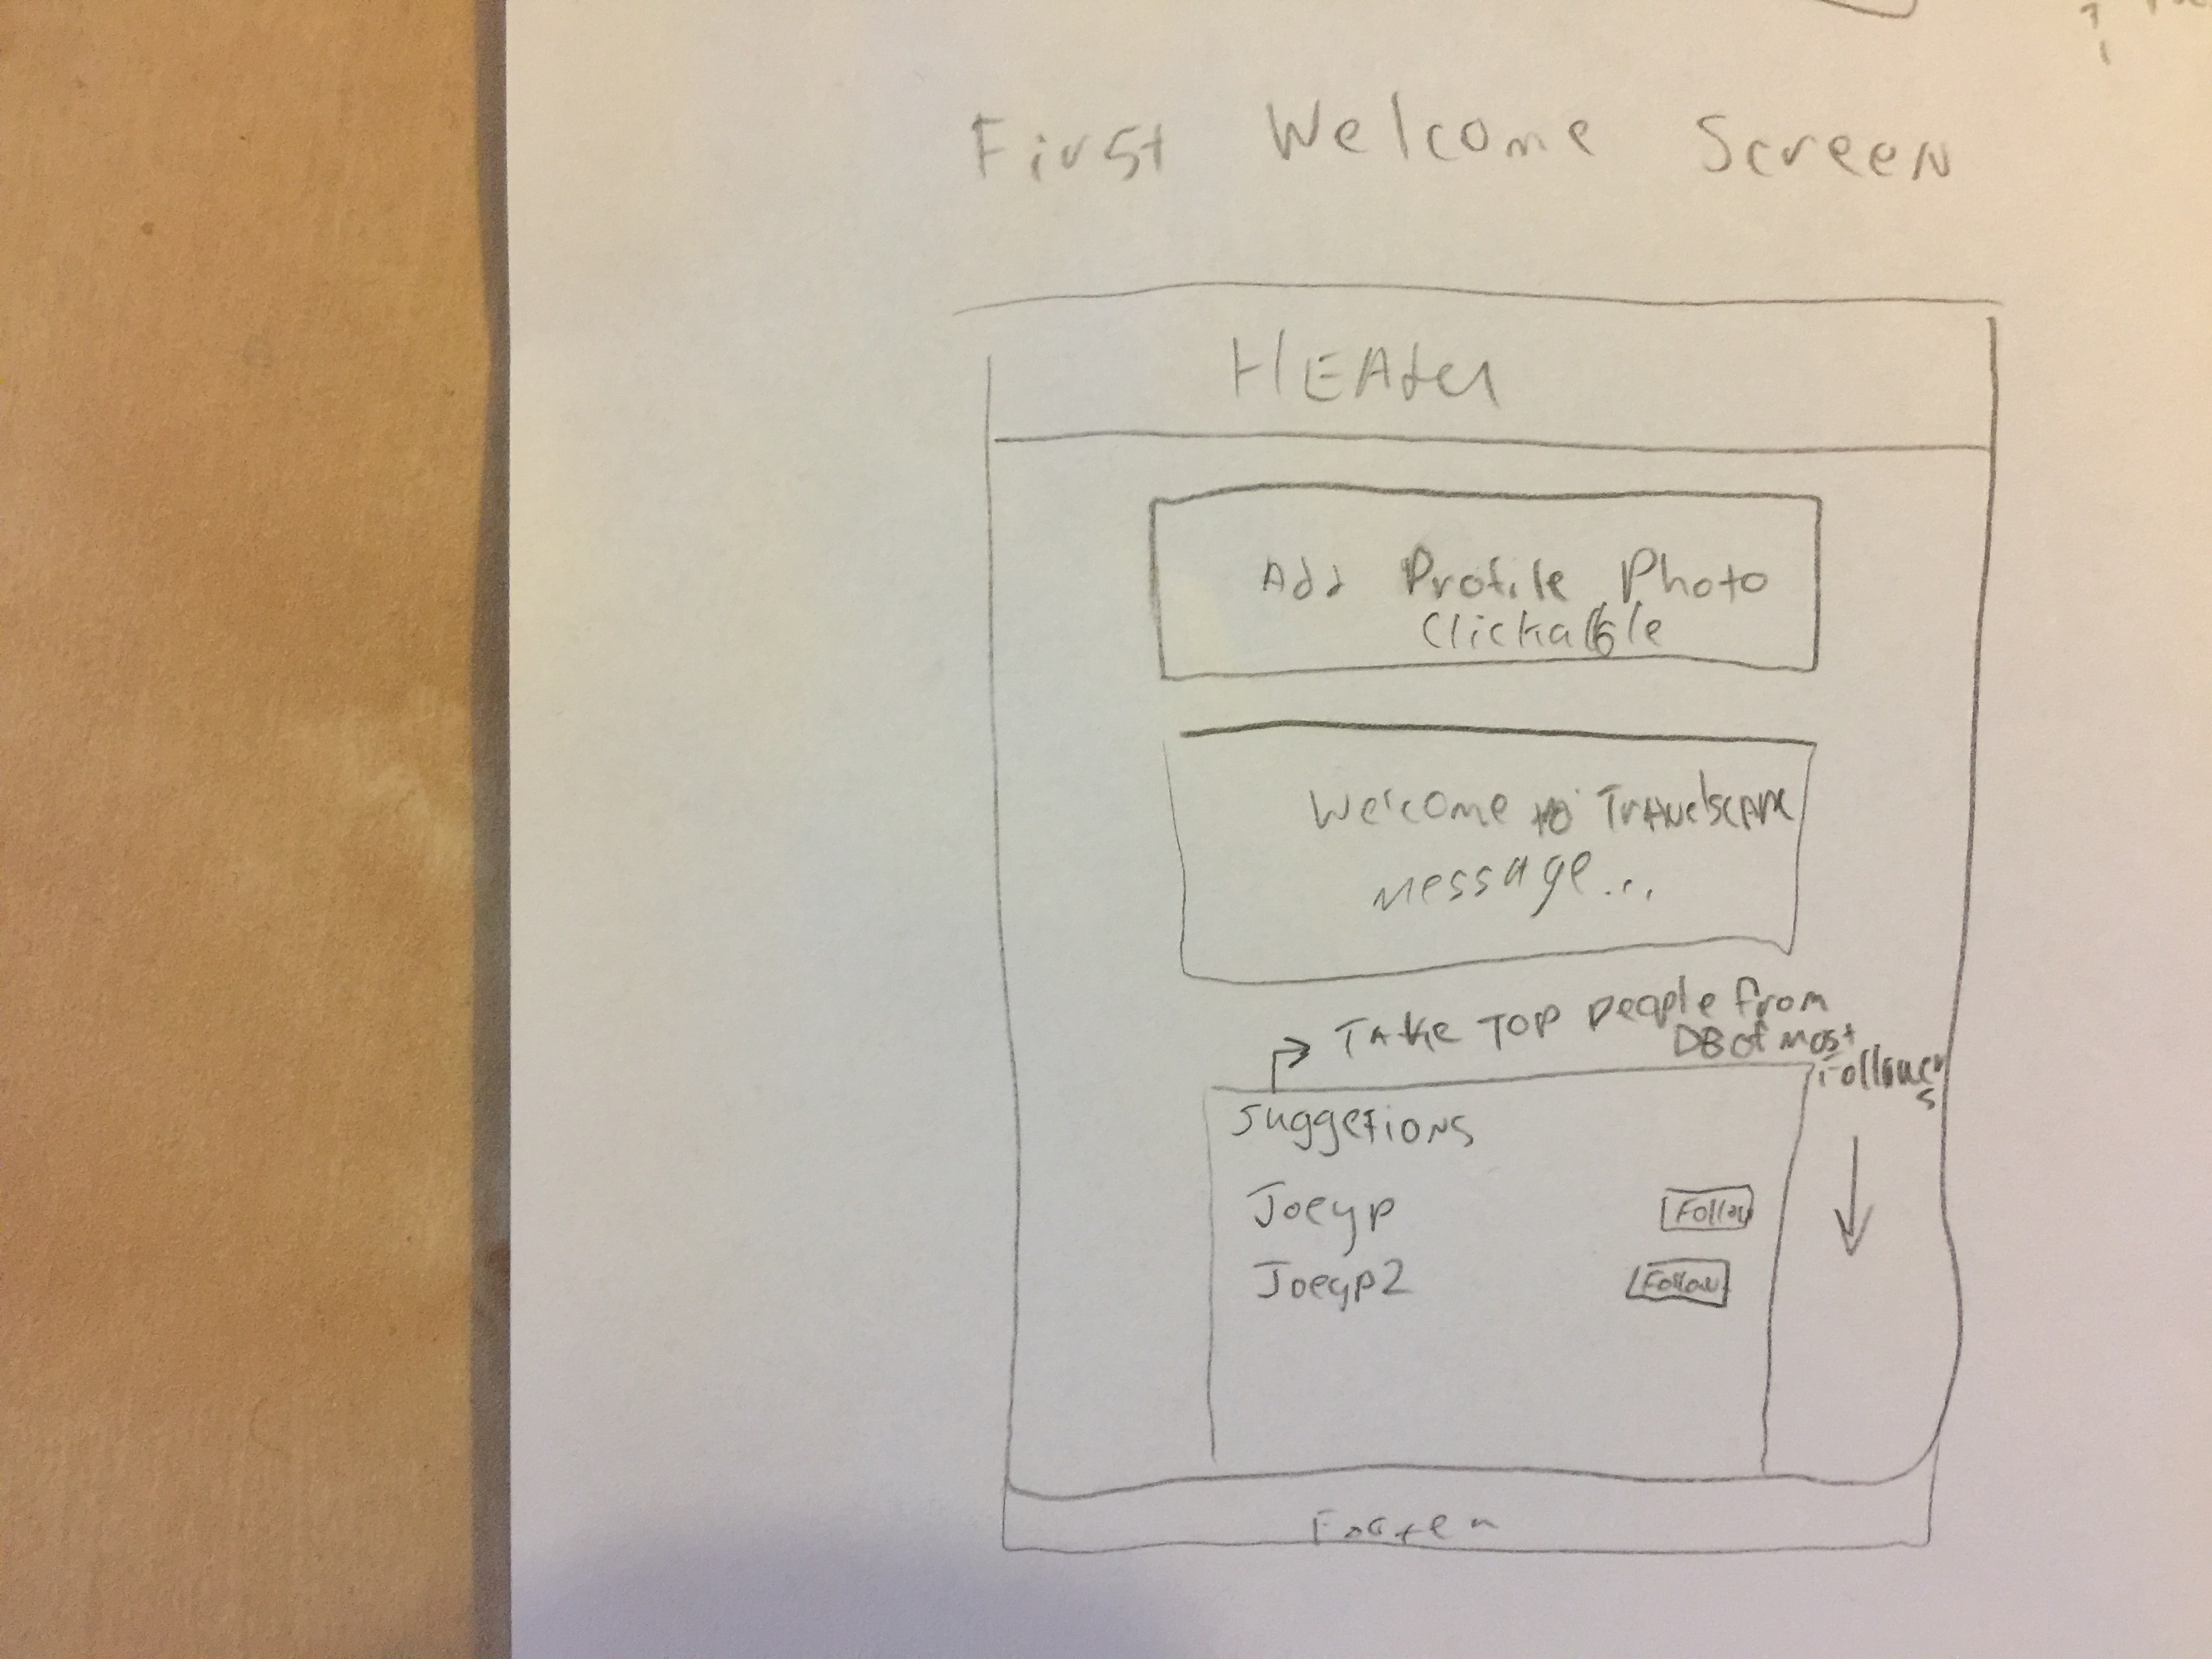 First Welcome Screen
HEADer
Add Profile Photo
Clickable
Welcome to
Message...
Take TOP People from
DB of most
followers
Suggetions
Joeyp Follow
Joeyp2 Follow
Footer